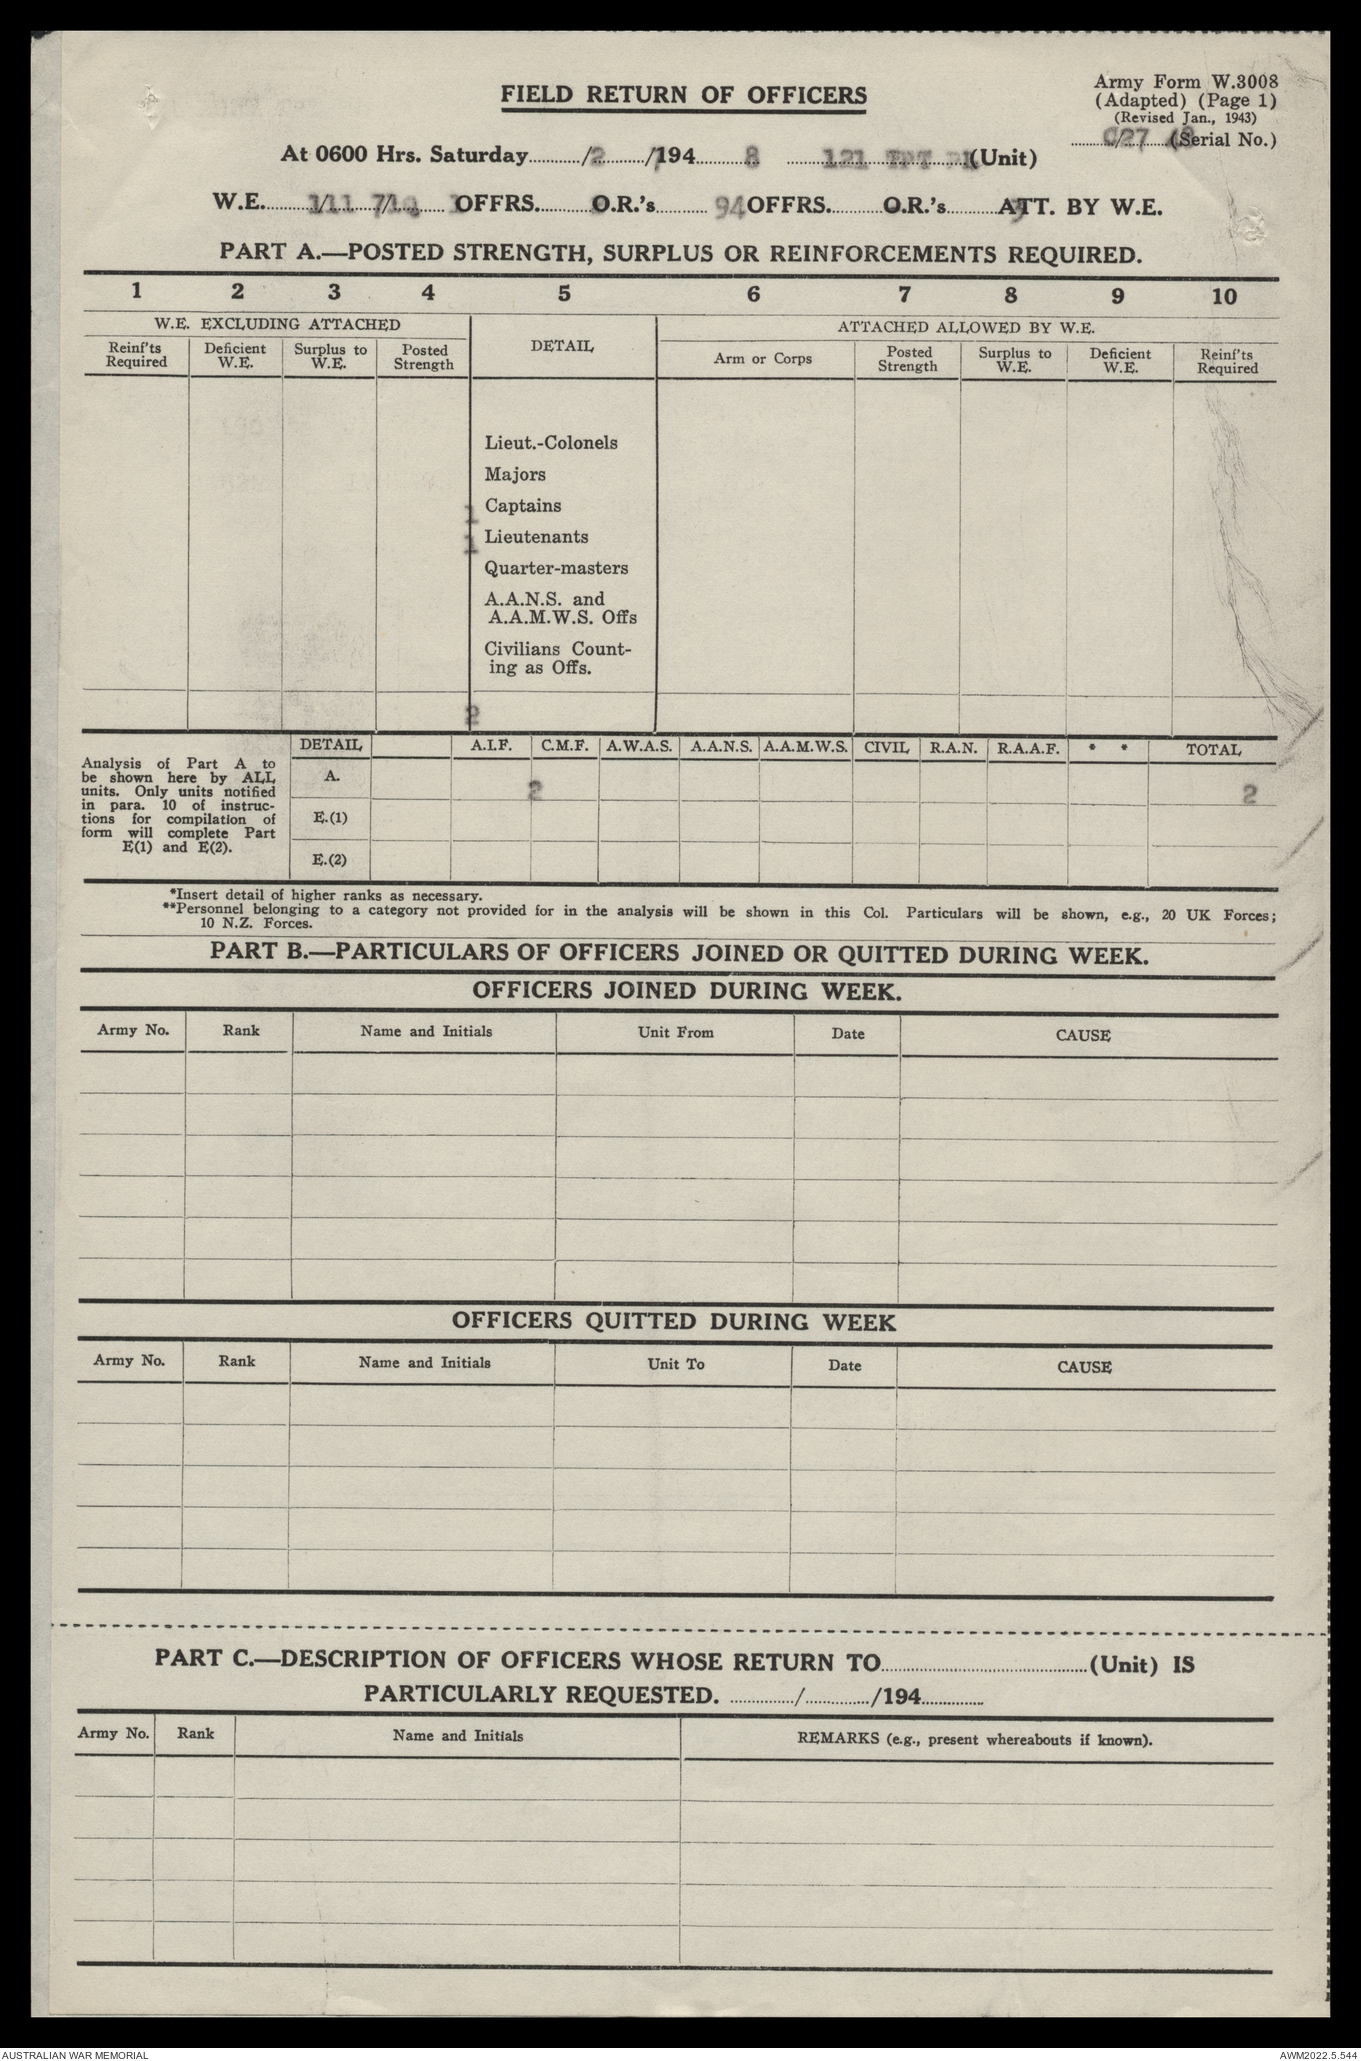 FIELD RETURN OF OFFICERS
Army Form W.3008
(Adapted) (Page 1)
(Revised Jan., 1943)
(Serial No.)
At 0600 Hrs. Saturday........../2........../194........8 ........121 TPT (Unit)
W.E. OFFRS...........O.R.'s........... 94 OFFRS...........O.R.'s...........ATT. BY W.E.
PART A.—POSTED STRENGTH, SURPLUS OR REINFORCEMENTS REQUIRED.
1 2 3 4 5 6 7 8 9 10
W.E. EXCLUDING ATTACHED DETAIL ATTACHED ALLOWED BY W.E.
Reinf'ts Required Deficient W.E. Surplus to W.E. Posted Strength Arm or Corps Posted Strength Surplus to W.E. Deficient W.E. Reinf'ts Required
Lieut.-Colonels
Majors
1 Captains
1 Lieutenants
Quarter-masters
A.A.N.S. and
A.A.M.W.S. Offs
Civilians Count-
ing as Offs.
2
DETAIL A.I.F. C.M.F. A.W.A.S. A.A.N.S. A.A.M.W.S. CIVIL R.A.N. R.A.A.F. * * TOTAL
Analysis of Part A to
be shown here by ALL
units. Only units notified
in para. 10 of instruc-
tions for compilation of
form will complete Part
E(1) and E(2).
A. 2 2
E.(1)
E.(2)
*Insert detail of higher ranks as necessary.
**Personnel belonging to a category not provided for in the analysis will be shown in this Col. Particulars will be shown, e.g., 20 UK Forces;
10 N.Z. Forces.
PART B.—PARTICULARS OF OFFICERS JOINED OR QUITTED DURING WEEK.
OFFICERS JOINED DURING WEEK.
Army No. Rank Name and Initials Unit From Date CAUSE
OFFICERS QUITTED DURING WEEK
Army No. Rank Name and Initials Unit To Date CAUSE
PART C.—DESCRIPTION OF OFFICERS WHOSE RETURN TO..............................(Unit) IS
PARTICULARLY REQUESTED. ............../............../194..............
Army No. Rank Name and Initials REMARKS (e.g., present whereabouts if known).
AUSTRALIAN WAR MEMORIAL AWM2022.5.544